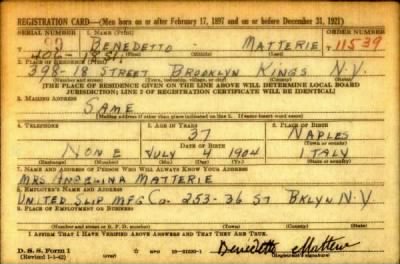 REGISTRATION CARD—(Men born on or after February 17, 1897 and on or before December 31, 1921)
SERIAL NUMBER 1. NAME (Print) ORDER NUMBER
BENEDETTO MATTERIE T 11539
(First) (Middle) (Last)
2. PLACE OF RESIDENCE (Print)
398-18 STREET BROOKLYN KINGS N.Y.
(Number and street) (Town, township, village, or city) (County) (State)
[THE PLACE OF RESIDENCE GIVEN ON THE LINE ABOVE WILL DETERMINE LOCAL BOARD
JURISDICTION; LINE 2 OF REGISTRATION CERTIFICATE WILL BE IDENTICAL]
3. MAILING ADDRESS
SAME
[Mailing address if other than place indicated on line 2. If same insert word same]
4. TELEPHONE 5. AGE IN YEARS 6. PLACE OF BIRTH
37 NAPLES
DATE OF BIRTH (Town or county)
NONE JULY 4 1904 ITALY
(Exchange) (Number) (Mo.) (Day) (Yr.) (State or country)
7. NAME AND ADDRESS OF PERSON WHO WILL ALWAYS KNOW YOUR ADDRESS
MRS ANGELINA MATTERIE
8. EMPLOYER'S NAME AND ADDRESS
UNITED SLIP MFG Co. 253-36 ST BKLYN N.Y.
9. PLACE OF EMPLOYMENT OR BUSINESS
(Number and street or R. F. D. number) (Town) (County) (State)
I AFFIRM THAT I HAVE VERIFIED ABOVE ANSWERS AND THAT THEY ARE TRUE.
D. S. S. Form 1
(Revised 1-1-42) (over) Benedetto Matterie
(Registrant's signature)